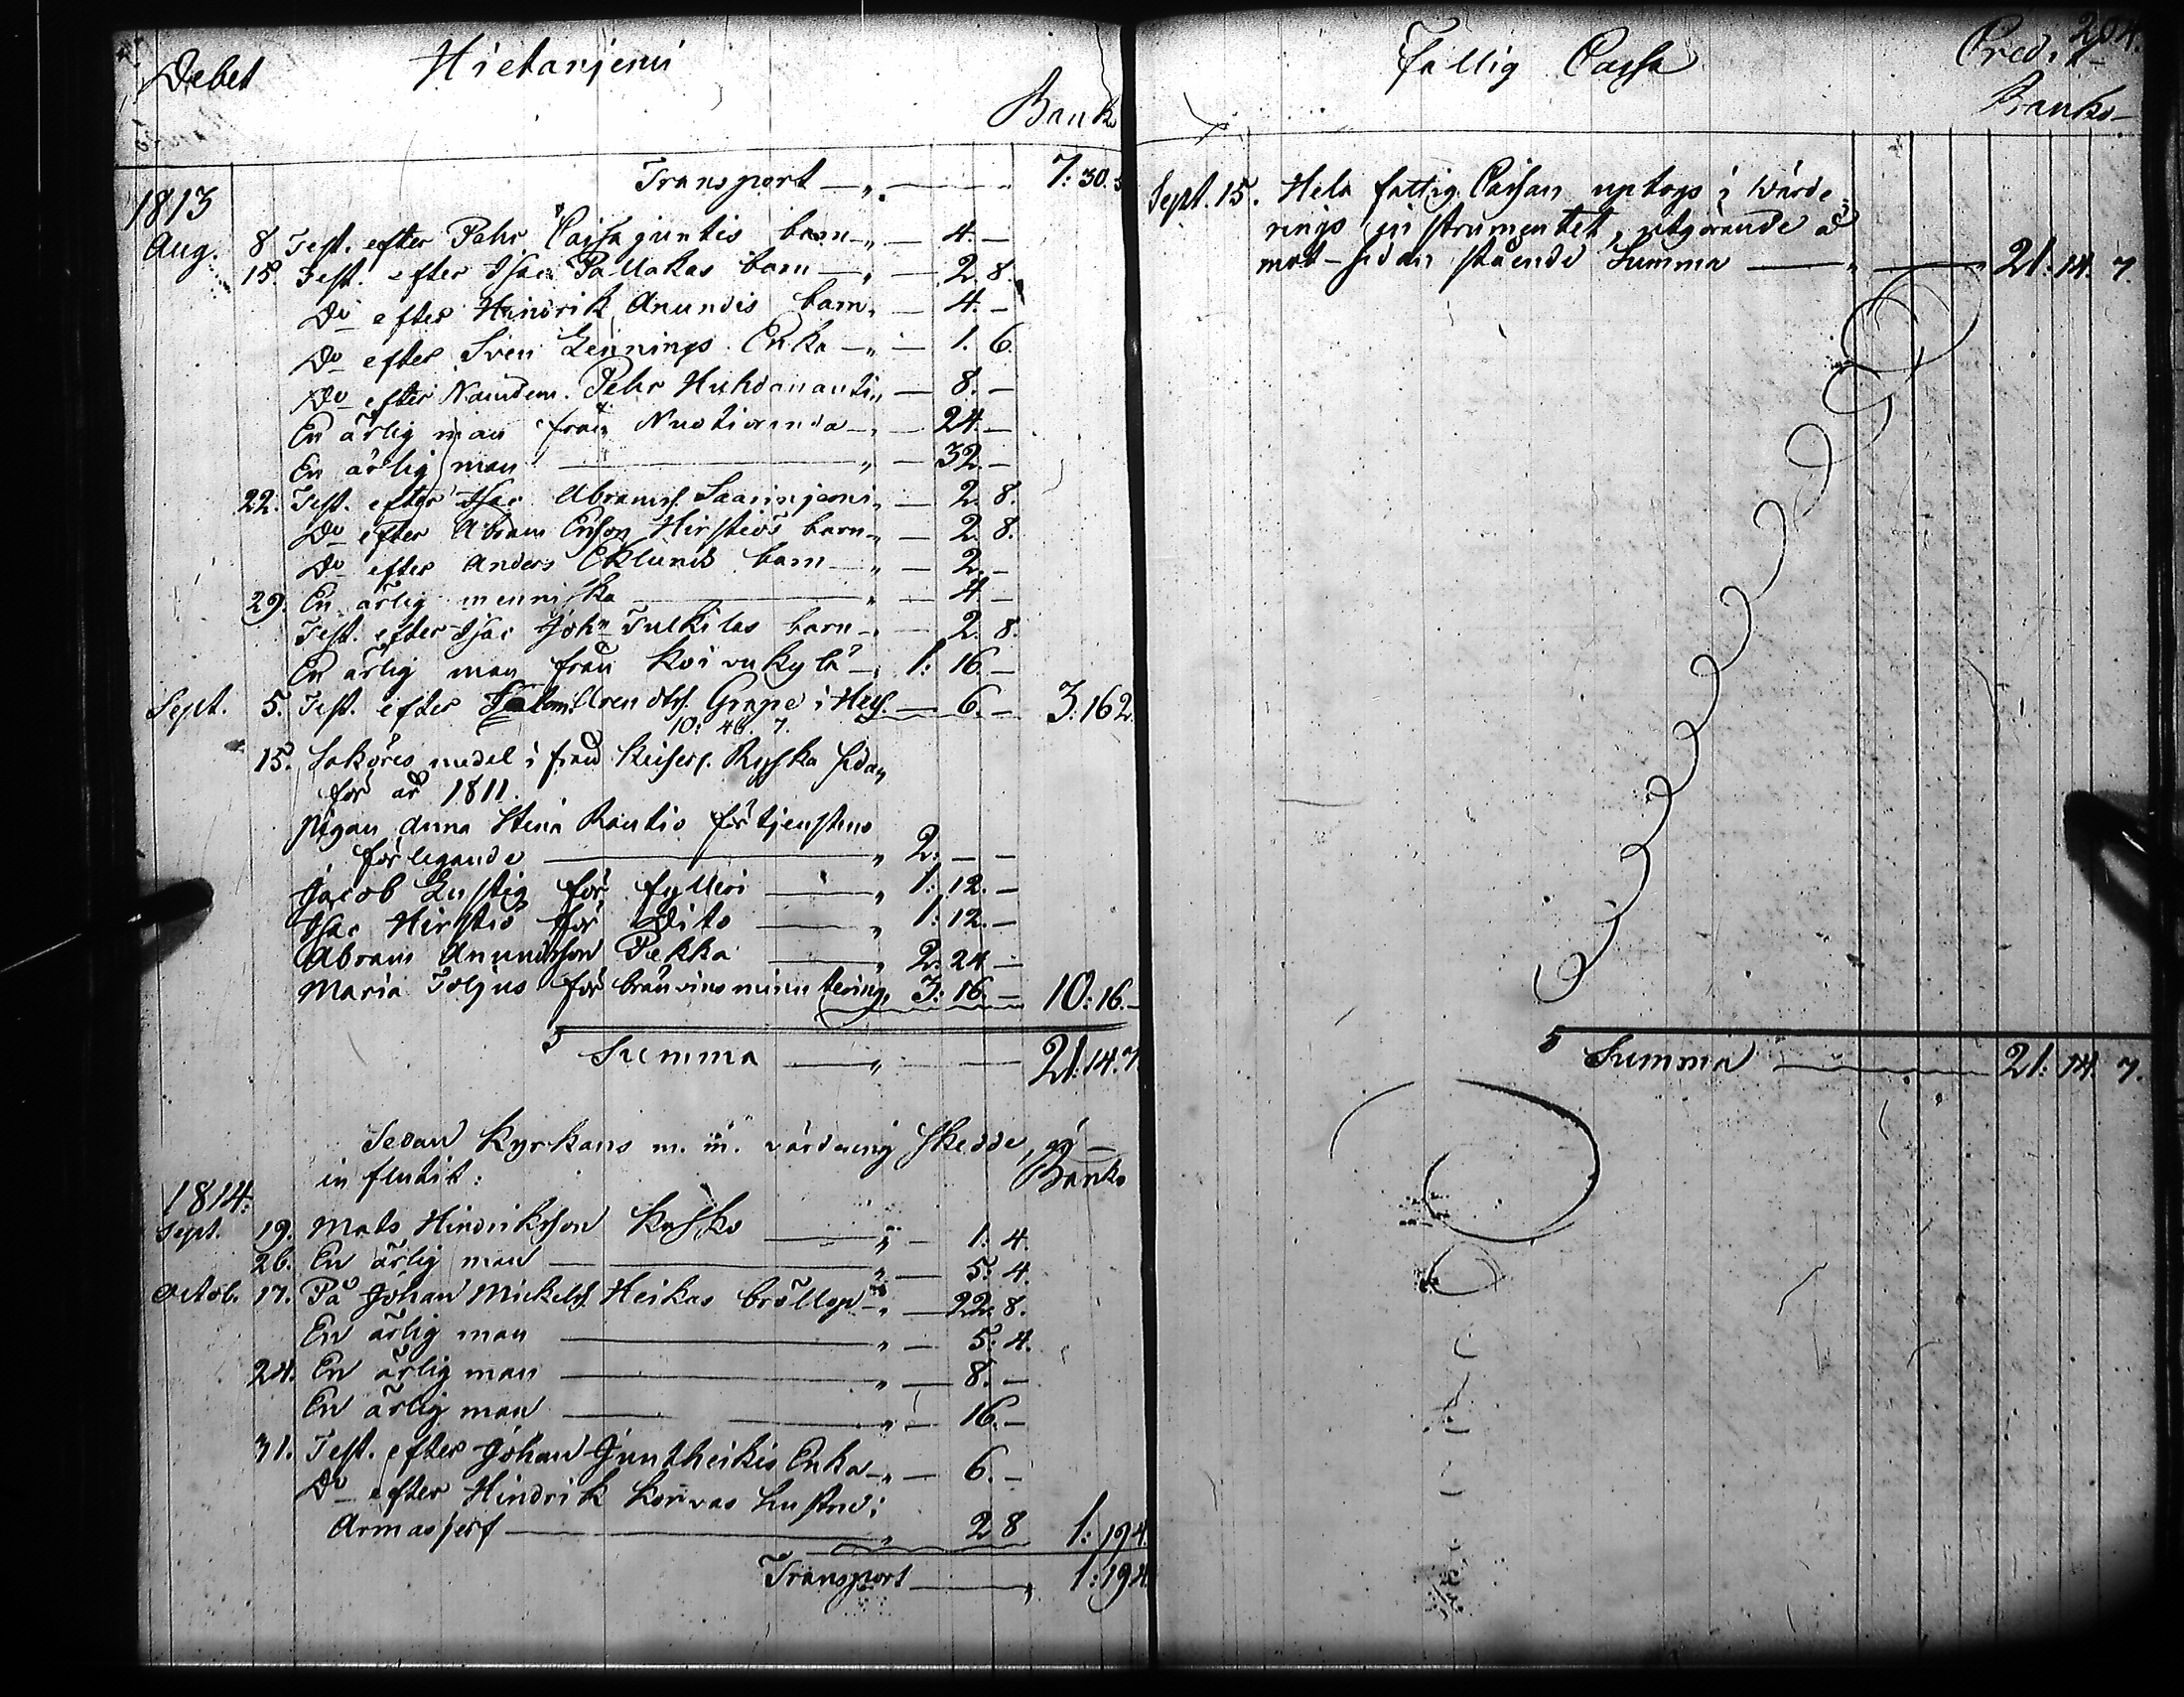 Debet Hietaniemi
Banko
Transport — „ — 7: 30. 5
1813
Aug. 8 Test. efter Pehr Cajsajuntis barn „ — 4. —
15. Test. efter Isac Pallakas barn — „ — 2. 8.
Do efter Hindrik Anundis barn „ — 4. —
Do efter Sven Lennings Enka — „ — 1. 6.
Do efter Nämdem. Pehr Huhdanantis „ — 8. —
En ärlig man från Nuotioranda — „ — 24. —
En ärlig man — „ — 32. —
22. Test. efter Isac Abramss. Saarinjemi „ — 2. 8.
Do efter Abram Ersson Hirstiös barn „ — 2. 8.
Do efter Anders Eklunds barn — „ — 2. —
29. En ärlig menniska — „ — 4 —
Test. efter Isac Johns Tulkilas barn — „ — 2. 8.
En ärlig man från Koivukylä — „ 1: 16. —
Sept. 5. Test. efter Arendtss. Grape i Hes. — 6. — 3: 16 2.
10: 46. 7.
15. Saköres medel ifrån Keiserl. Ryska sidan
för år 1811.
Pigan Anna Stina Rautio för tjenstens
förlegande — „ 2. — —
Jacob Lustig för fylleri — „ 1: 12. —
Isac Hirstiö för Dito — „ 1: 12. —
Abram Anundsson Pekka — „ 2: 24 —
Maria Toljus för bränvins minutering, 3: 16. — 10: 16. —
Summa — „ — 21: 14. 7.
Sedan Kyrkans m. m. värdering skedde,
in flutit: Banko
1814.
Sept. 19. Mats Hindriksson Kusko — „ — 1: 4.
26. En ärlig man — „ — 5: 4.
Octob. 17. På Johan Mickelss. Heikas bröllop — „ — 22. 8.
En ärlig man — „ — 5: 4.
24. En ärlig man — „ — 8. —
En ärlig man — „ — 16. —
31. Test. efter Johan Juntheikis Enka — „ — 6. —
Do efter Hindrik Korvas hustru i
Armasjerf — „ 2 8 1: 19 4.
Transport — „ 1: 19 4
204.
Fattig Cassa Credit
Banko
Sept. 15. Hela fattig Cassan uptogs i Värde-
rings instrumentet, utgörande å
mot-sidan stående Summa — „ — 21: 14. 7.
Summa — 21: 14. 7.